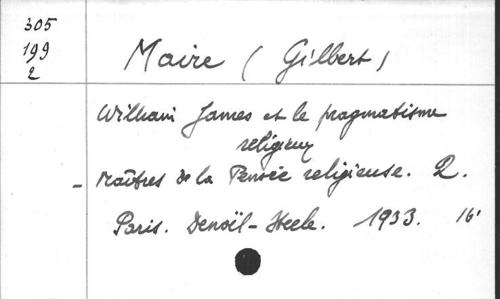 305
199
2
Maire (Gilbert)
William James et le pragmatisme
religieux
- Maîtres de la Pensée religieuse. 2.
Paris. Denoël-Steele. 1933. 16°